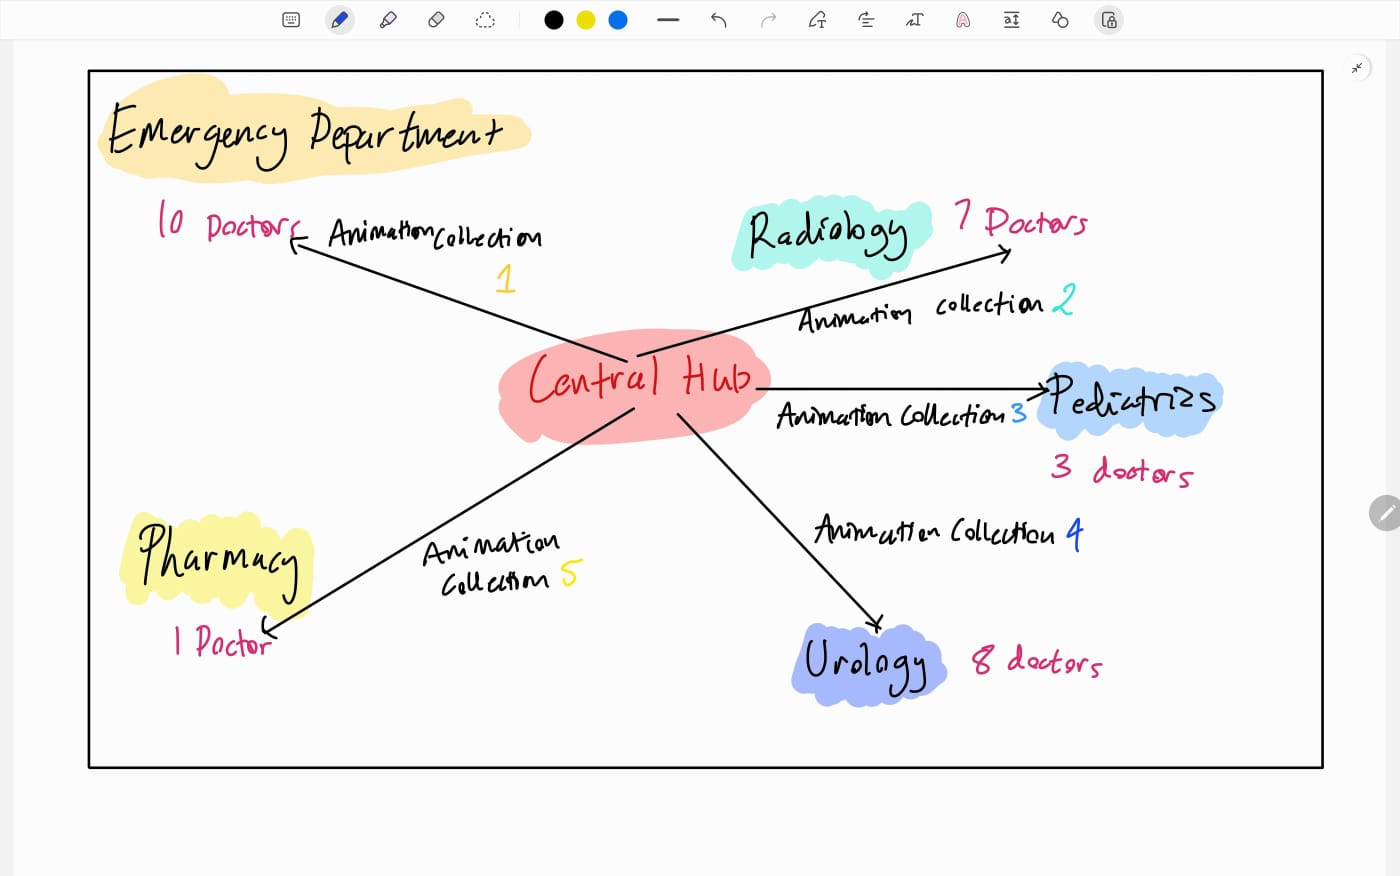 Emergency Department
10 Doctors
Animation Collection
1
Radiology
7 Doctors
Animation Collection 2
Central Hub
Animation Collection 3
Pediatrics
3 doctors
Animation Collection 4
Pharmacy
1 Doctor
Animation
Collection 5
Urology
8 doctors